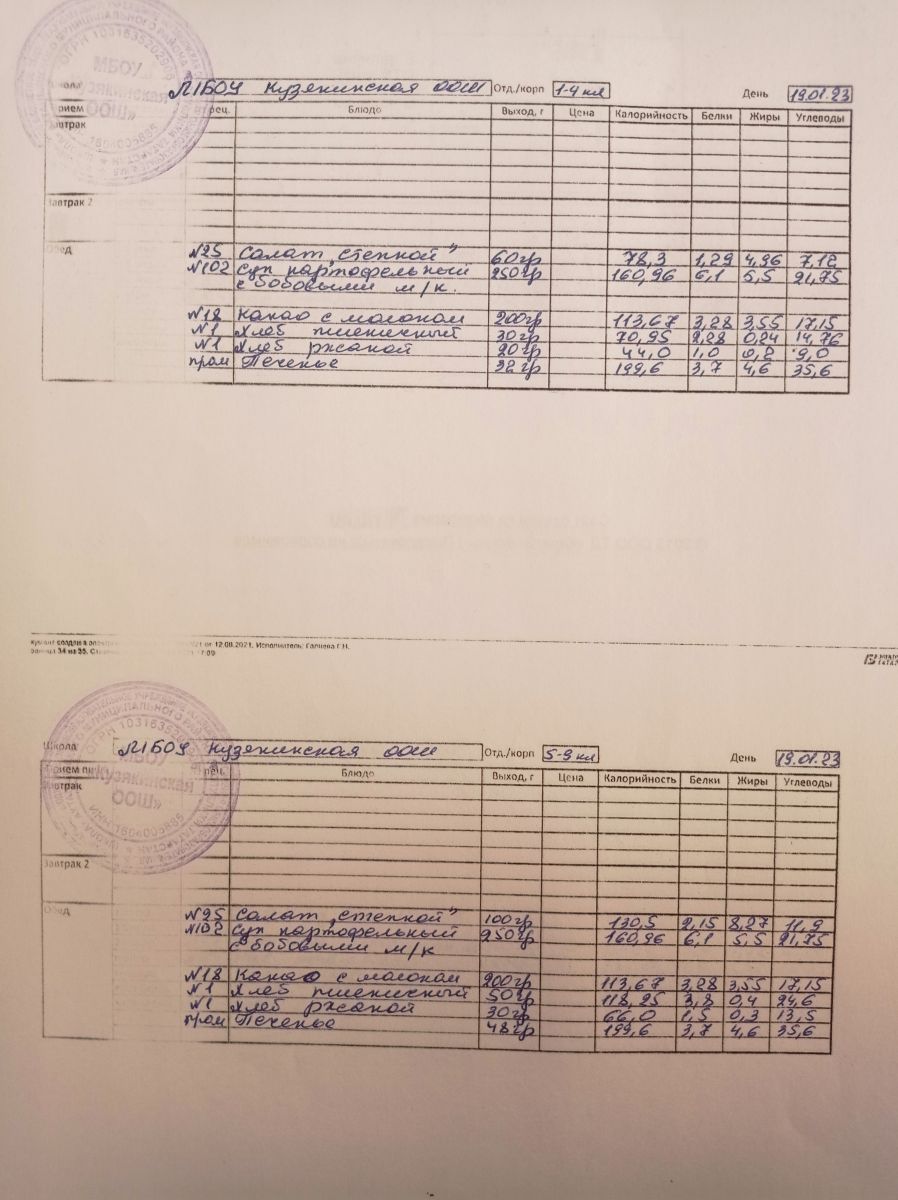 МБОУ
Кузякинская
ООШ»
ОГРН 103163520297
МБОУ Кузякинская ООШ Отд./корп 1-4 кл День 19.01.23
рец. Блюдо Выход, г Цена Калорийность Белки Жиры Углеводы
Завтрак
Завтрак 2
№25 Салат „Степной" 60гр 78,3 1,29 4,96 7,12
№102 Суп картофельный 250гр 160,96 6,1 5,5 21,75
с бобовыми м/к.
№18 Какао с молоком 200гр 113,67 3,28 3,55 17,15
№1 Хлеб пшеничный 30гр 70,95 2,28 0,24 14,76
№1 Хлеб ржаной 20гр 44,0 1,0 0,2 9,0
пром Печенье 32гр 199,6 3,7 4,6 35,6
от 12.08.2021, Исполнитель: Галиева Г.Н.
34 из 35.
Школа МБОУ Кузякинская ООШ Отд./корп 5-9 кл День 19.01.23
Прием рец. Блюдо Выход, г Цена Калорийность Белки Жиры Углеводы
МБОУ
«Кузякинская
ООШ»
Завтрак
Завтрак 2
№25 Салат „Степной" 100гр 130,5 2,15 8,27 11,9
№102 Суп картофельный 250гр 160,96 6,1 5,5 21,75
с бобовыми м/к
№18 Какао с молоком 200гр 113,67 3,28 3,55 17,15
№1 Хлеб пшеничный 50гр 118,25 3,8 0,4 24,6
№1 Хлеб ржаной 30гр 66,0 1,5 0,3 13,5
пром Печенье 48гр 199,6 3,7 4,6 35,6